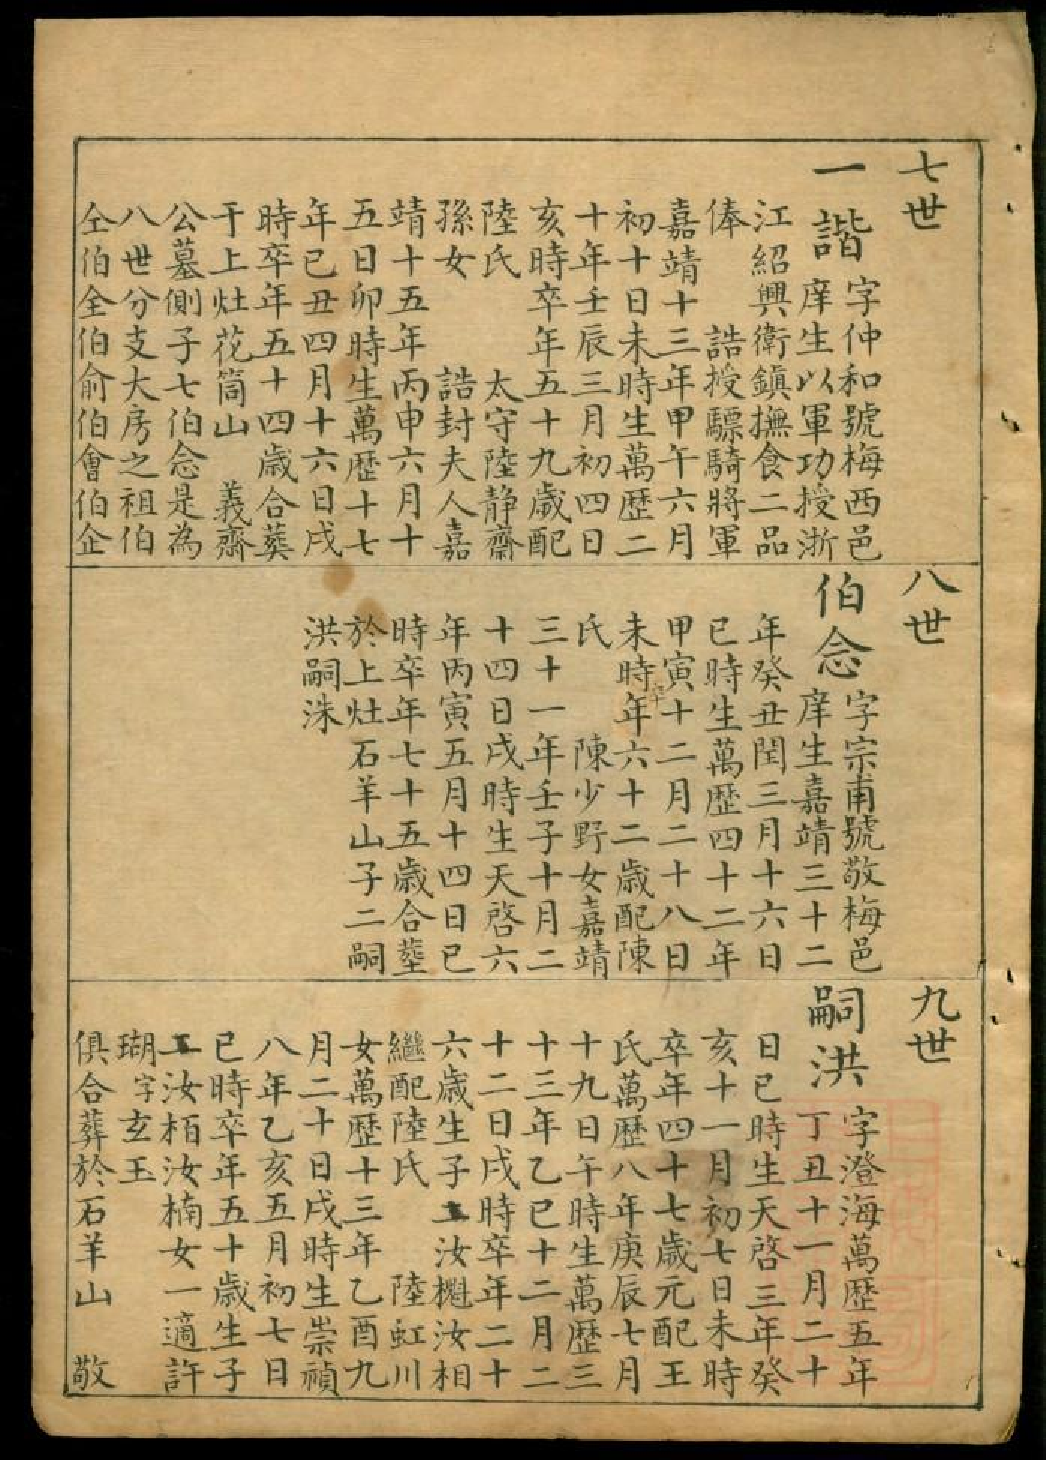 七世
一諧
字仲和號梅西邑
庠生以軍功授浙
江紹興衛鎮撫食二品
俸　誥授驃騎將軍
嘉靖十三年甲午六月
初十日未時生萬歴二
十年壬辰三月初四日
亥時卒年五十九歲配
陸氏　太守陸静齋
孫女　誥封夫人嘉
靖十五年丙申六月十
五日卯時生萬歴十七
年已丑四月十六日戌
時卒年五十四歲合葬
于上灶花筒山　義齋
公墓側子七伯念是為
八世分支大房之祖伯
仝伯全伯俞伯會伯企
八世
伯念
字宗甫號敬梅邑
庠生嘉靖三十二
年癸丑閏三月十六日
已時生萬歴四十二年
甲寅十二月二十八日
未時卒年六十二歲配陳
氏　陳少野女嘉靖
三十一年壬子十月二
十四日戌時生天啓六
年丙寅五月十四日已
時卒年七十五歲合塟
於上灶石羊山子二嗣
洪嗣洙
九世
嗣洪
字澄海萬歴五年
丁丑十一月二十
日已時生天啓三年癸
亥十一月初七日未時
卒年四十七歲元配王
氏萬歴八年庚辰七月
十九日午時生萬歴三
十三年乙巳十二月二
十二日戌時卒年二十
六歲生子二汝櫆汝相
繼配陸氏　陸虹川
女萬歴十三年乙酉九
月二十日戌時生崇禎
八年乙亥五月初七日
已時卒年五十歲生子
二汝栢汝楠女一適許
瑚字玄玉
俱合葬於石羊山　敬